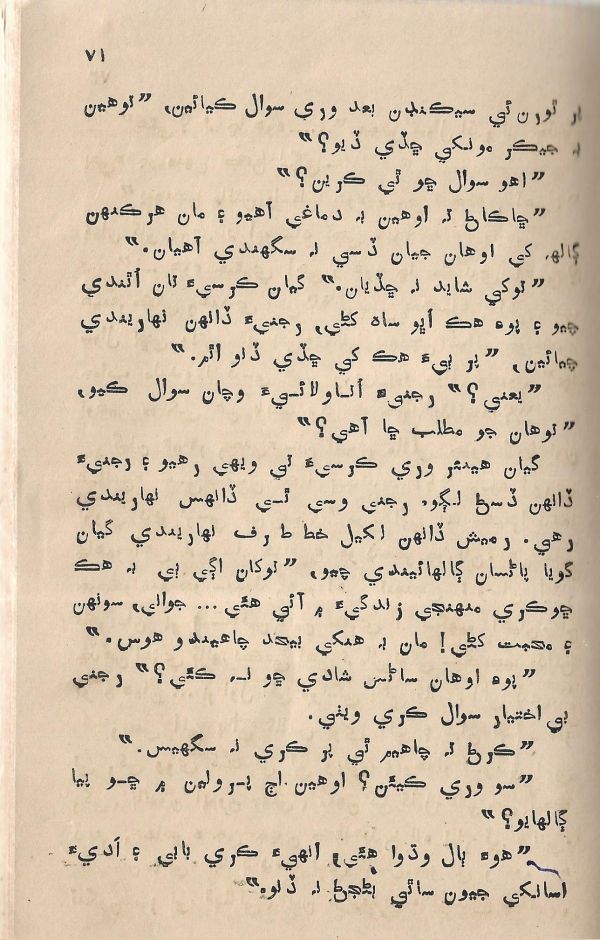 ٧١
ٿورن ئي سيڪنڊن بعد وري سوال ڪيائين، ”توهين
نہ جيڪر مونکي ڇڏي ڏيو؟“
”اهو سوال ڇو ٿي ڪرين؟“
”ڇاڪاڻ تہ اوهين بہ دماغي آهيو ۽ مان هرڪنهن
ڳالهہ کي اوهان جيان ڏسي نہ سگهندي آهيان.“
”توکي شايد نہ ڇڏيان.“ گيان ڪرسيءَ تان اُٿندي
چيو ۽ پوءِ هڪ اُڀو ساهہ کڻي، رجنيءَ ڏانهن نهاريندي
چيائين، ”پر ٻيءَ هڪ کي ڇڏي ڏنو اٿم.“
”يعني؟“ رجنيءَ اُتاولائيءَ وچان سوال ڪيو،
”توهان جو مطلب ڇا آهي؟“
گيان هيٺئر وري ڪرسيءَ تي ويهي رهيو ۽ رجنيءَ
ڏانهن ڏسڻ لڳو. رجني وسي ٿي ڏانهس نهاريندي
رهي. رميش ڏانهن لکيل خط طرف نهاريندي گيان
گويا پاڻسان ڳالهائيندي چيو، ”توکان اڳي ٻي بہ هڪ
ڇوڪري منهنجي زندگيءَ ۾ آئي هئي... جواني، سونهن
۽ محبت کڻي! مان بہ هنکي بيحد چاهيندو هوس.“
”پوءِ اوهان ساڻس شادي ڇو نہ ڪئي؟“ رجني
بي اختيار سوال ڪري ويٺي.
”ڪرڻ تہ چاهيم ٿي پر ڪري نہ سگهيس.“
”سو وري ڪيئن؟ اوهين اڄ پرولين ۾ ڇو پيا
ڳالهايو؟“
”هوءَ ٻال وڌوا هئي، انهيءَ ڪري ٻاٻي ۽ اَديءَ
اسانکي جيون ساٿي بڻجڻ نہ ڏنو.“